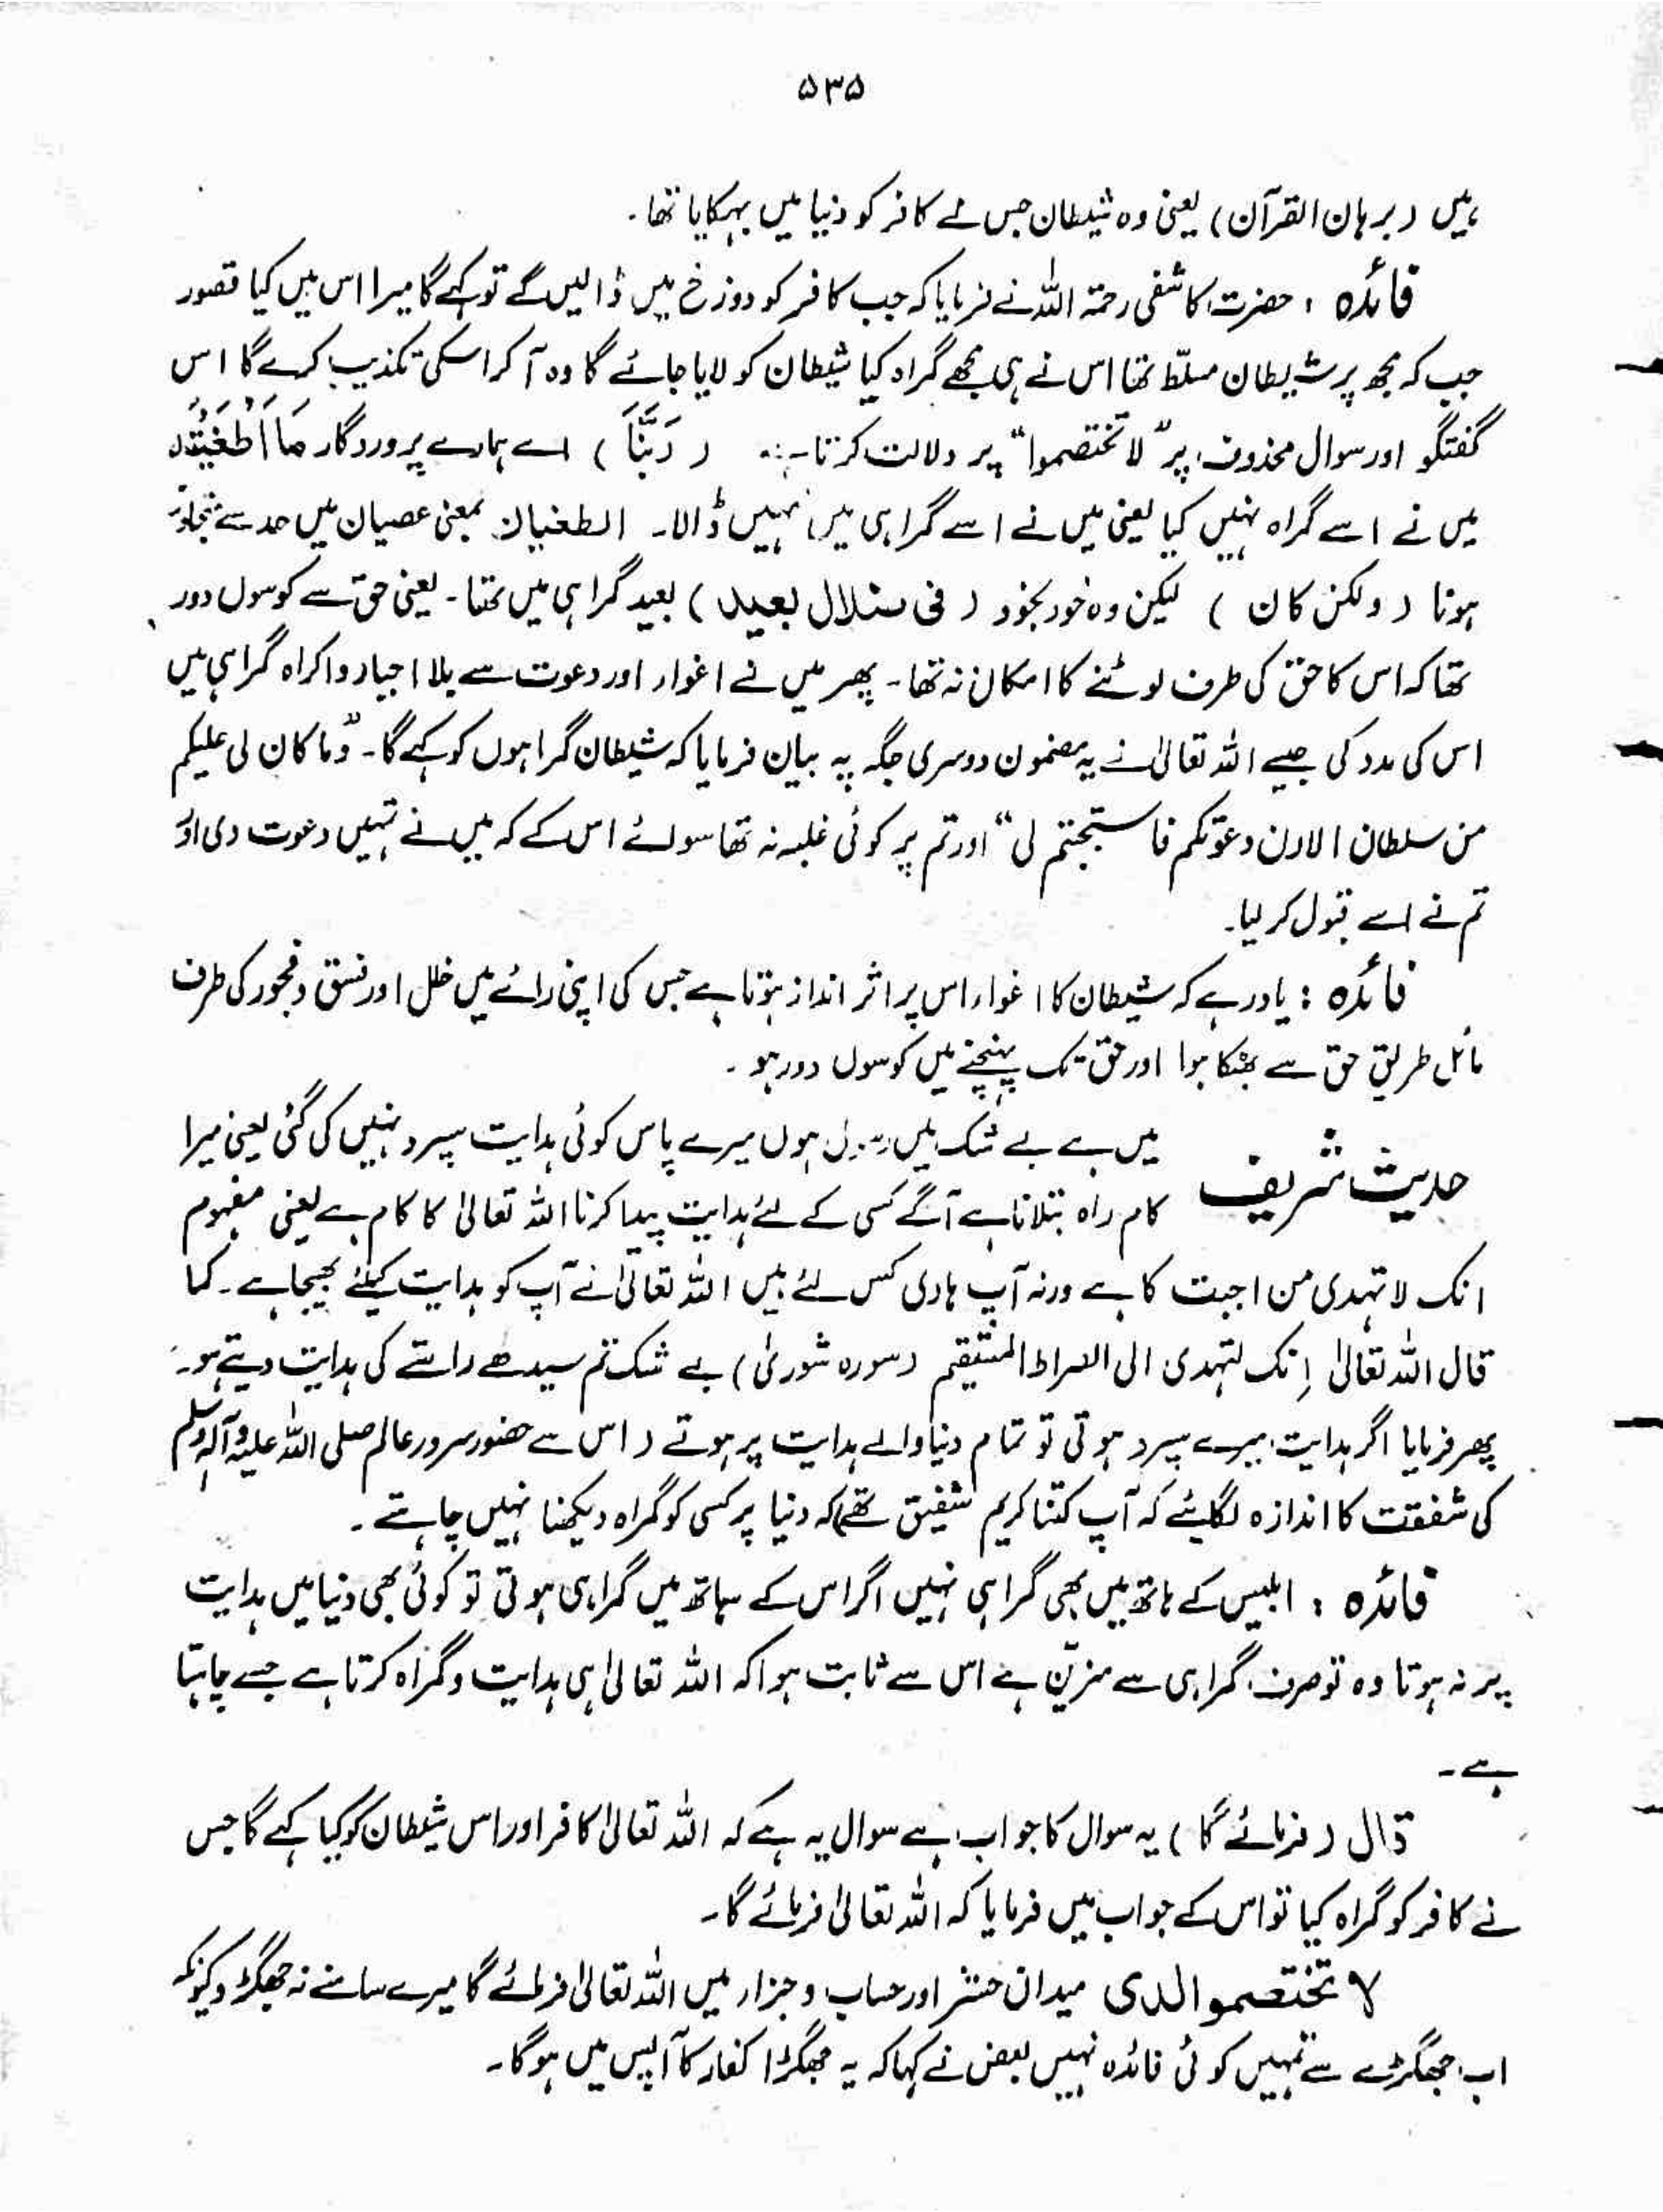 ۵۳۵
ہیں (برہان القرآن) یعنی وہ شیطان جس نے کافر کو دنیا میں بہکایا تھا۔
فائدہ : حضرت کاشفی رحمۃ اللہ نے فرمایا کہ جب کافر کو دوزخ میں ڈالیں گے تو کہے گا میرا اس میں کیا قصور
جب کہ مجھ پر شیطان مسلّط تھا اس نے ہی مجھے گمراہ کیا شیطان کو لایا جائے گا وہ آ کر اسکی تکذیب کرے گا اس
گفتگو اور سوال محذوف پر "لا تختصموا" پر دلالت کرتا ہے۔ (رَبَّنَا) اے ہمارے پروردگار مَا اَطْغَیْتُہٗ
میں نے اسے گمراہ نہیں کیا یعنی میں نے اسے گمراہی میں نہیں ڈالا۔ الطغیان بمعنی عصیان میں حد سے متجاوز
ہونا (ولکن کان) لیکن وہ خود بخود (فی ضلال بعید) بعید گمراہی میں تھا۔ یعنی حق سے کوسوں دور
تھا کہ اس کا حق کی طرف لوٹنے کا امکان نہ تھا۔ پھر میں نے اغوار اور دعوت سے بلا اجبار و اکراہ گمراہی میں
اس کی مدد کی جیسے اللہ تعالیٰ نے یہ مضمون دوسری جگہ پہ بیان فرمایا کہ شیطان گمراہوں کو کہے گا۔ "وما کان لی علیکم
من سلطان الا ان دعوتکم فاستجبتم لی" اور تم پر کوئی غلبہ نہ تھا سوائے اس کے کہ میں نے تمہیں دعوت دی اور
تم نے اسے قبول کر لیا۔
فائدہ : یاد رہے کہ شیطان کا اغواء اس پر اثر انداز ہوتا ہے جس کی اپنی رائے میں خلل اور فسق و فجور کی طرف
مائل طریق حق سے بھٹکا ہوا اور حق تک پہنچنے میں کوسوں دور ہو۔
حدیث شریف میں ہے بے شک میں رسول ہوں میرے پاس کوئی ہدایت سپرد نہیں کی گئی یعنی میرا
کام راہ بتلانا ہے آگے کسی کے لئے ہدایت پیدا کرنا اللہ تعالیٰ کا کام ہے یعنی مفہوم
انک لا تہدی من اجبت کا ہے ورنہ آپ ہادی کس لئے ہیں اللہ تعالیٰ نے آپ کو ہدایت کیلئے بھیجا ہے۔ کما
قال اللہ تعالیٰ اِنک لتہدی الی الصراط المستقیم (سورہ شوریٰ) بے شک تم سیدھے راستے کی ہدایت دیتے ہو۔
پھر فرمایا اگر ہدایت میرے سپرد ہوتی تو تمام دنیا والے ہدایت پر ہوتے (اس سے حضور سرور عالم صلی اللہ علیہ وآلہ وسلم
کی شفقت کا اندازہ لگایئے کہ آپ کتنا کریم شفیق تھے) کہ دنیا پر کسی کو گمراہ دیکھنا نہیں چاہتے۔
فائدہ : ابلیس کے ہاتھ میں بھی گمراہی نہیں اگر اس کے ہاتھ میں گمراہی ہوتی تو کوئی بھی دنیا میں ہدایت
پر نہ ہوتا وہ تو صرف گمراہی سے مزیّن ہے اس سے ثابت ہوا کہ اللہ تعالیٰ ہی ہدایت و گمراہ کرتا ہے جسے چاہتا
ہے۔
قال (فرمائے گا) یہ سوال کا جواب ہے سوال یہ ہے کہ اللہ تعالیٰ کافر اور اس شیطان کو کیا کہے گا جس
نے کافر کو گمراہ کیا تو اس کے جواب میں فرمایا کہ اللہ تعالیٰ فرمائے گا۔
لا تختصموا لدی میدان حشر اور حساب و جزار میں اللہ تعالیٰ فرمائے گا میرے سامنے نہ جھگڑو کیونکہ
اب جھگڑے سے تمہیں کوئی فائدہ نہیں بعض نے کہا کہ یہ جھگڑا کفار کا آپس میں ہوگا۔